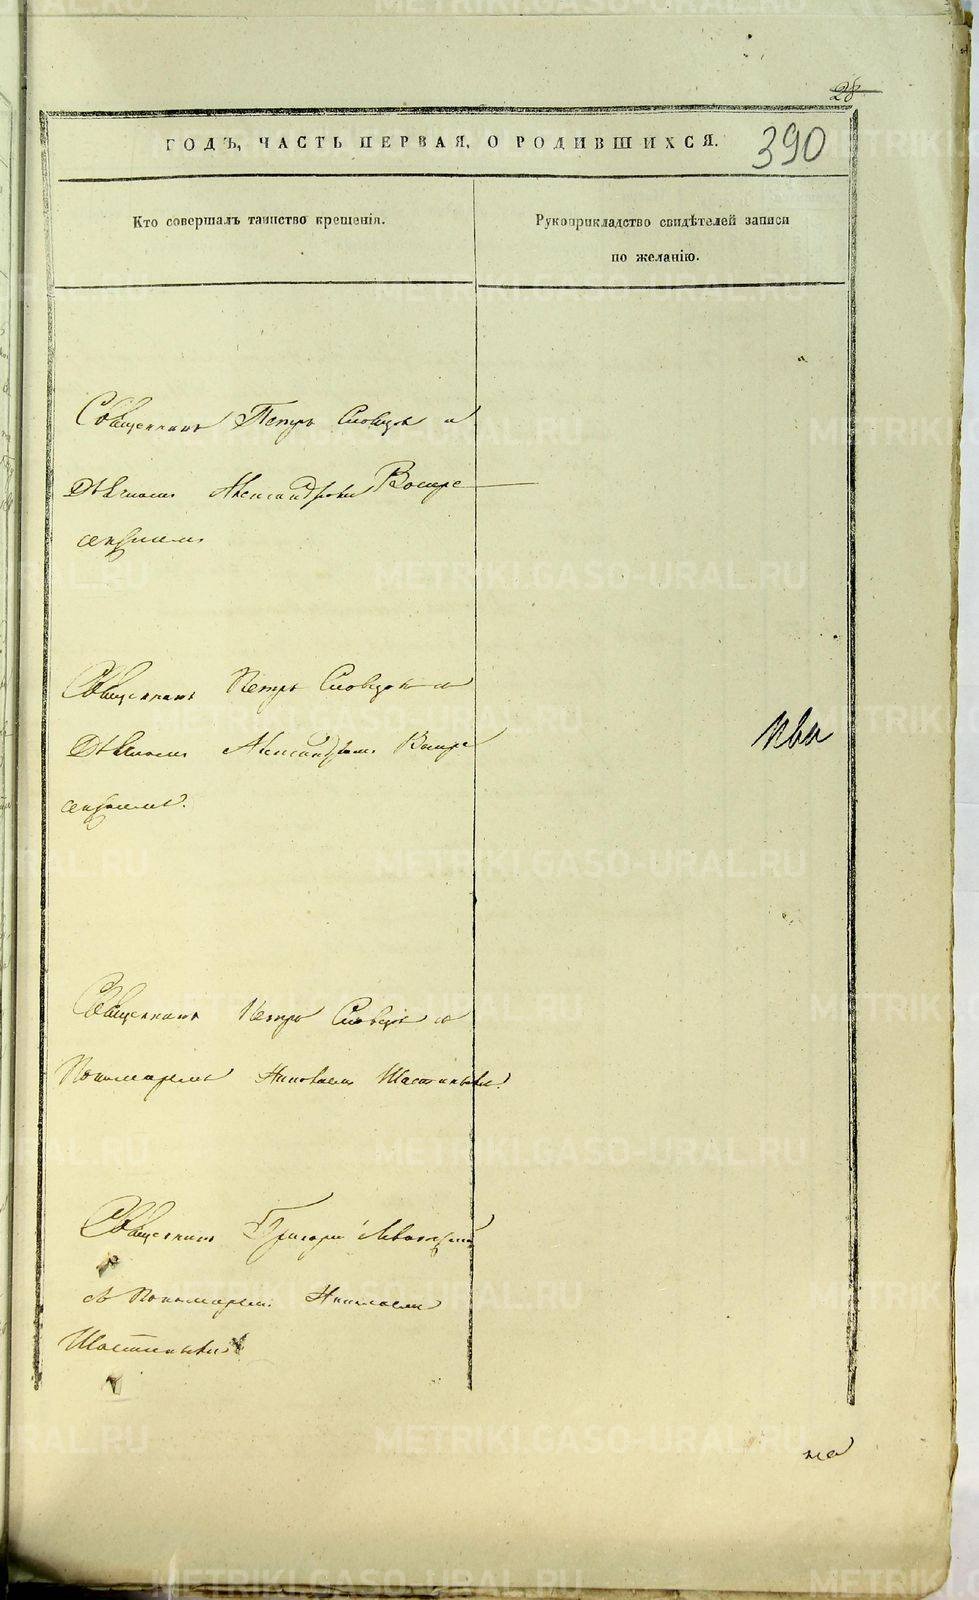 28
ГОДЪ, ЧАСТЬ ПЕРВАЯ, О РОДИВШИХСЯ.
390
Кто совершалъ таинство крещенія.
Рукоприкладство свидѣтелей записи
по желанію.
Священникъ Петръ Словцовъ и
Дьячкомъ Александромъ Воскре
сенскимъ
Священникъ Петръ Словцовъ и
Дьячкомъ Александромъ Воскре
сенскимъ.
Священникъ Петръ Словцовъ и
Пономаремъ Николаемъ
Священникъ Григорій
съ Пономаремъ Николаемъ
METRIKI.GASO-URAL.RU